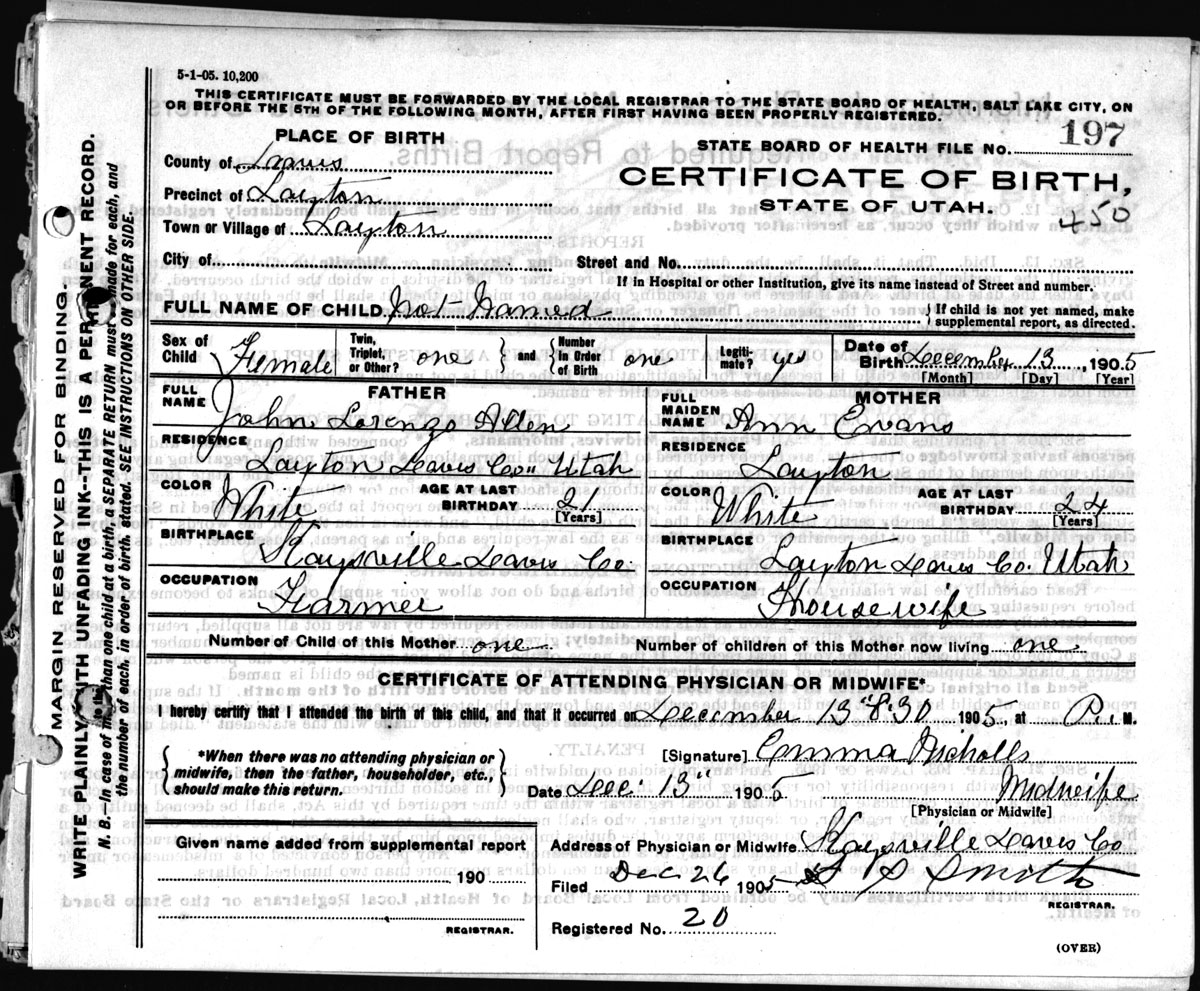 5-1-05. 10,200
THIS CERTIFICATE MUST BE FORWARDED BY THE LOCAL REGISTRAR TO THE STATE BOARD OF HEALTH, SALT LAKE CITY, ON
OR BEFORE THE 5TH OF THE FOLLOWING MONTH, AFTER FIRST HAVING BEEN PROPERLY REGISTERED.
PLACE OF BIRTH
STATE BOARD OF HEALTH FILE NO. 197
County of Davis
CERTIFICATE OF BIRTH,
Precinct of Layton
STATE OF UTAH.
450
Town or Village of Layton
City of
Street and No.
If in Hospital or other Institution, give its name instead of Street and number.
FULL NAME OF CHILD Not Named { If child is not yet named, make supplemental report, as directed.
Sex of Child Female Twin, Triplet, or Other? one } and { Number In Order of Birth one Legitimate? yes Date of Birth December 13, 1905
[Month] [Day] [Year]
FATHER
FULL NAME John Lorenzo Allen
MOTHER
FULL MAIDEN NAME Ann Evans
RESIDENCE Layton Davis Co., Utah
RESIDENCE Layton
COLOR White AGE AT LAST BIRTHDAY 21 [Years]
COLOR White AGE AT LAST BIRTHDAY 24 [Years]
BIRTHPLACE Kaysville Davis Co.
BIRTHPLACE Layton Davis Co. Utah
OCCUPATION Farmer
OCCUPATION Housewife
Number of Child of this Mother one Number of children of this Mother now living one
CERTIFICATE OF ATTENDING PHYSICIAN OR MIDWIFE*
I hereby certify that I attended the birth of this child, and that it occurred on December 13" 8.30 1905, at P. M.
{ *When there was no attending physician or midwife, then the father, householder, etc., should make this return. }
[Signature] Emma Nicholls
Date Dec. 13" 1905. Midwife
[Physician or Midwife]
Given name added from supplemental report
190
REGISTRAR.
Address of Physician or Midwife Kaysville Davis Co
Filed Dec 26 1905 Smith
REGISTRAR.
Registered No. 20
(OVER)
MARGIN RESERVED FOR BINDING.
WRITE PLAINLY WITH UNFADING INK--THIS IS A PERMANENT RECORD.
N. B.--In case of more than one child at a birth, a SEPARATE RETURN must be made for each, and
the number of each, in order of birth, stated. SEE INSTRUCTIONS ON OTHER SIDE.